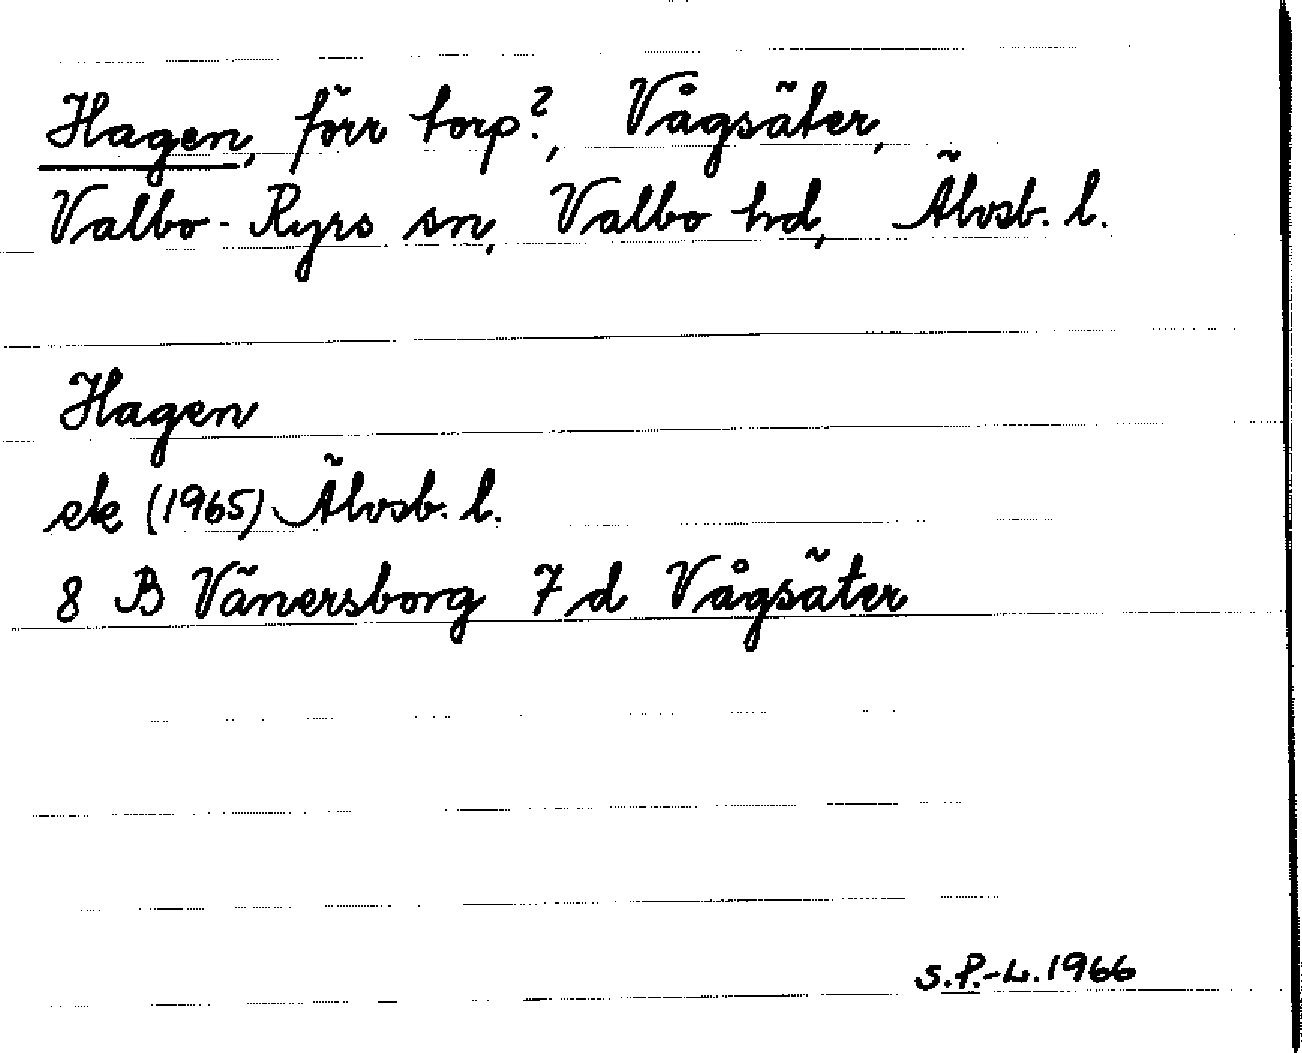 Hagen, förr torp?, Vågsäter,
Valbo-Ryrs sn, Valbo hd, Älvsb. l.
Hagen
ek (1965) Älvsb. l.
8 B Vänersborg 7 d Vågsäter
S.P.-L. 1966